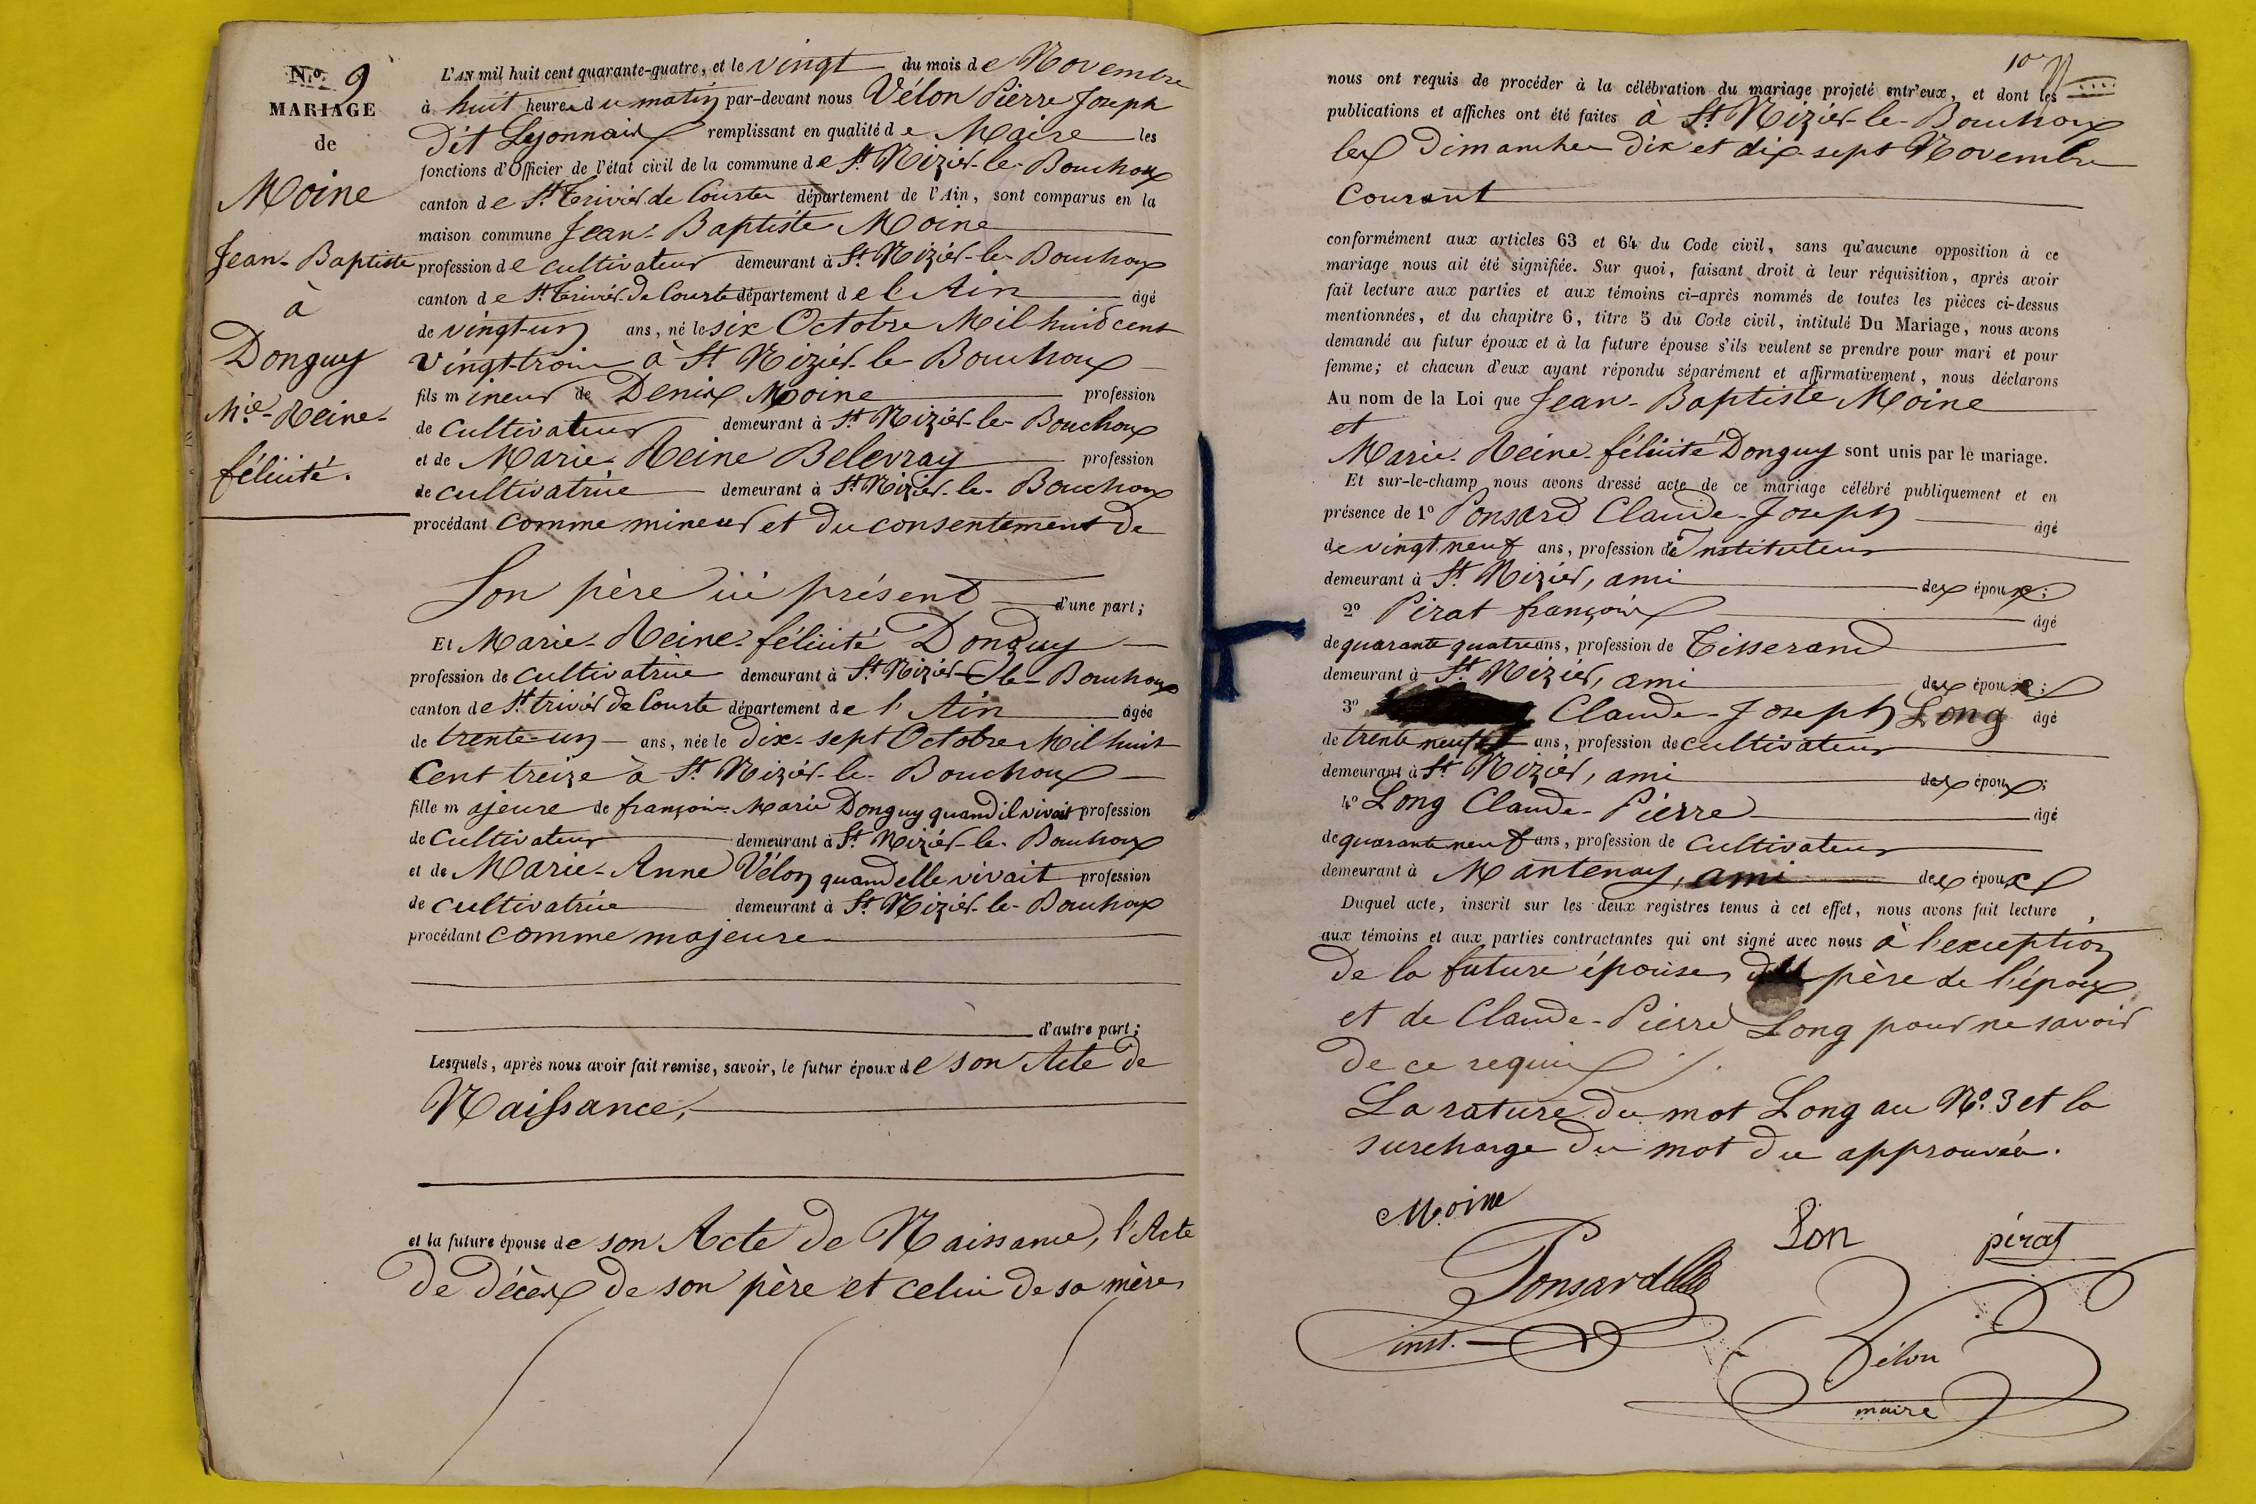 N.º 9
MARIAGE
de
Moine
Jean-Baptiste
à
Donguy
Mie-Reine-
félicité.
L'AN mil huit cent quarante-quatre, et le vingt du mois de Novembre
à huit heures du matin par-devant nous Vélon Pierre Joseph
Dit Lyonnais remplissant en qualité de Maire les
fonctions d'Officier de l'état civil de la commune de St Nizier-le-Bouchoux
canton de St Trivier de Courtes département de l'Ain, sont comparus en la
maison commune Jean-Baptiste Moine
profession de cultivateur demeurant à St Nizier-le-Bouchoux
canton de St Trivier de Courtes département de l'Ain âgé
de vingt-un ans, né le six Octobre Mil huit cent
vingt-trois à St Nizier-le-Bouchoux
fils mineur de Denis Moine profession
de cultivateur demeurant à St Nizier-le-Bouchoux
et de Marie-Reine Belevray profession
de cultivatrice demeurant à St Nizier-le-Bouchoux
procédant comme mineur et du consentement de
Son père ici présent d'une part;
Et Marie-Reine-félicité Donguy
profession de cultivatrice demeurant à St Nizier-le-Bouchoux
canton de St trivier de Courtes département de l'Ain âgée
de trente-un ans, née le Dix-sept Octobre Mil huit
Cent treize à St Nizier-le-Bouchoux
fille majeure de françois-Marie Donguy quand il vivait profession
de cultivateur demeurant à St Nizier-le-Bouchoux
et de Marie-Anne Vélon quand elle vivait profession
de cultivatrice demeurant à St Nizier-le-Bouchoux
procédant comme majeure
d'autre part;
Lesquels, après nous avoir fait remise, savoir, le futur époux de son Acte de
Naissance,
et la future épouse de son Acte de Naissance, l'Acte
de décès de son père et celui de sa mère
10
nous ont requis de procéder à la célébration du mariage projeté entr'eux, et dont les
publications et affiches ont été faites à St Nizier-le-Bouchoux
les Dimanches dix et dix-sept Novembre
Courant
conformément aux articles 63 et 64 du Code civil, sans qu'aucune opposition à ce
mariage nous ait été signifiée. Sur quoi, faisant droit à leur réquisition, après avoir
fait lecture aux parties et aux témoins ci-après nommés de toutes les pièces ci-dessus
mentionnées, et du chapitre 6, titre 5 du Code civil, intitulé Du Mariage, nous avons
demandé au futur époux et à la future épouse s'ils veulent se prendre pour mari et pour
femme; et chacun d'eux ayant répondu séparément et affirmativement, nous déclarons
Au nom de la Loi que Jean-Baptiste Moine
et
Marie-Reine-félicité Donguy sont unis par le mariage.
Et sur-le-champ nous avons dressé acte de ce mariage célébré publiquement et en
présence de 1º Ponsard Claude-Joseph âgé
de vingt neuf ans, profession de Instituteur
demeurant à St Nizier, ami des époux;
2º Pirat françois âgé
de quarante quatre ans, profession de Tisserand
demeurant à St Nizier, ami des époux;
3º Claude-Joseph Long âgé
de trente neuf ans, profession de cultivateur
demeurant à St Nizier, ami des époux;
4º Long Claude-Pierre âgé
de quarante neuf ans, profession de cultivateur
demeurant à Mantenay, ami des époux
Duquel acte, inscrit sur les deux registres tenus à cet effet, nous avons fait lecture
aux témoins et aux parties contractantes qui ont signé avec nous à l'exception
de la future épouse, du père de l'époux
et de Claude-Pierre Long pour ne savoir
de ce requis
La rature du mot Long au No. 3 et la
surcharge du mot du approuvées.
Moine
Lon
pirat
Ponsard
inst.
Vélon
maire